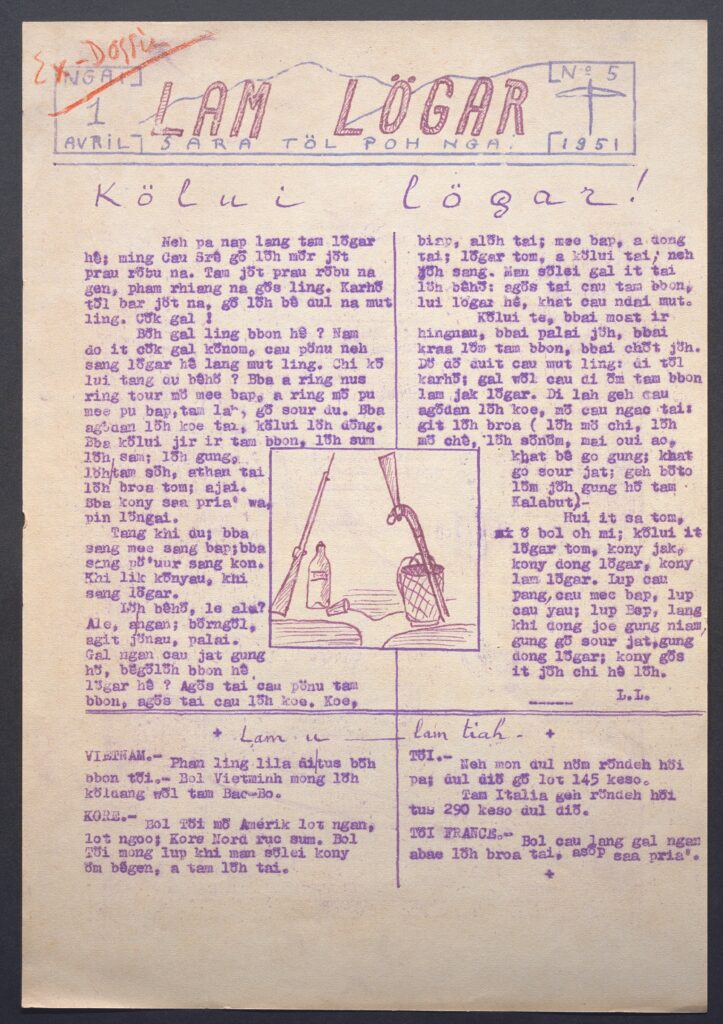 Ex-Dossier
NGAI
1
AVRIL
LAM LÖGAR
5 ARA TÖL POH NGAI
No 5
1951
Kölui lögar!
Neh pa nap lang tam lögar
hê; ming Cau Srê gö löh mör jöt
prau röbu na. Tam jöt prau röbu na
gen, pham rhiang na gös ling. Karhö
töl bar jöt na, gö löh bê dul na mut
ling. Cök gal !
Böh gal ling bbon hê ? Nam
do it cök gal könom, cau pönu neh
sang lögar hê lang mut ling. Chi kö
lui tang du böhö ? Bba a ring nus
ring tour mö mee bap, a ring mö pu
mee pu bap, tam la , gö sour du. Bba
agödan löh koe tai, kölui löh döng.
Bba kölui jir ir tam bbon, löh sum
löh sam; löh gung,
löh tam söh, athan tai
löh broa tom; ajai.
Bba kony saa pria' wa,
pin löngai.
Tang khi du; bba
sang mee sang bap; bba
sang pö'uur sang kon.
Khi lik könyau, khi
sang lögar.
Löh bêhö, le ala?
Ale, angan; börngöl,
agit jönau, palai.
Gal ngan cau jat gung
hö, bêgölöh bbon hê
lögar hê ? Agös tai cau pönu tam
bbon, agös tai cau löh koe. Koe,
biap, alöh tai; mee bap, a dong
tai; lögar tom, a kölui tai, neh
jöh sang. Man sölei gal it tai
löh bêhö: agös tai cau tam bbon,
lui lögar hê, khat cau ndai mut.
Kölui te, bbai moat ir
hingnau, bbai palai jöh, bbai
kraa löm tam bbon, bbai chöt jöh.
Dö dö duit cau mut ling: di töl
karhö; gal wöl cau di öm tam bbon
lam jak lögar. Di lah geh cau
agödan löh koe, mö cau ngac tai:
git löh broa ( löh mö chi, löh
mö chê, löh sönöm, mai oui ao,
khat bê go gung; khat
go sour jat; geh böto
löm jöh gung hö tam
Kalabut)-
Hui it sa tom,
ö bol oh mi; kölui it
lögar tom, kony jak,
kony dong lögar, kony
lam lögar. Lup cau
pang, cau mec bap, lup
cau yau; lup Bep, lang
khi dong joe gung niam,
gung gö sour jat, gung
dong lögar; kony gös
it jöh chi hê löh.
L.L.
+ Lam u — lam tiah - +
VIETNAM.- Phan ling lila aitus böh
bbon töi.- Bol Vietminh mong löh
köluang wöl tam Bac-Bo.
KORE.- Bol Töi mö Amérik lot ngan,
lot ngoo; Kore Nord ruc sum. Bol
Töi mong lup khi man sölei kony
öm bêgen, a tam löh tai.
TÖI.-
Neh mon dul nöm röndeh höi
pa; dul diö gö lot 145 keso.
Tam Italia geh röndeh höi
tus 290 keso dul diö.
TÖI FRANCE.- Bol cau lang gal ngan
abae löh broa tai, asöp saa pria'.
+